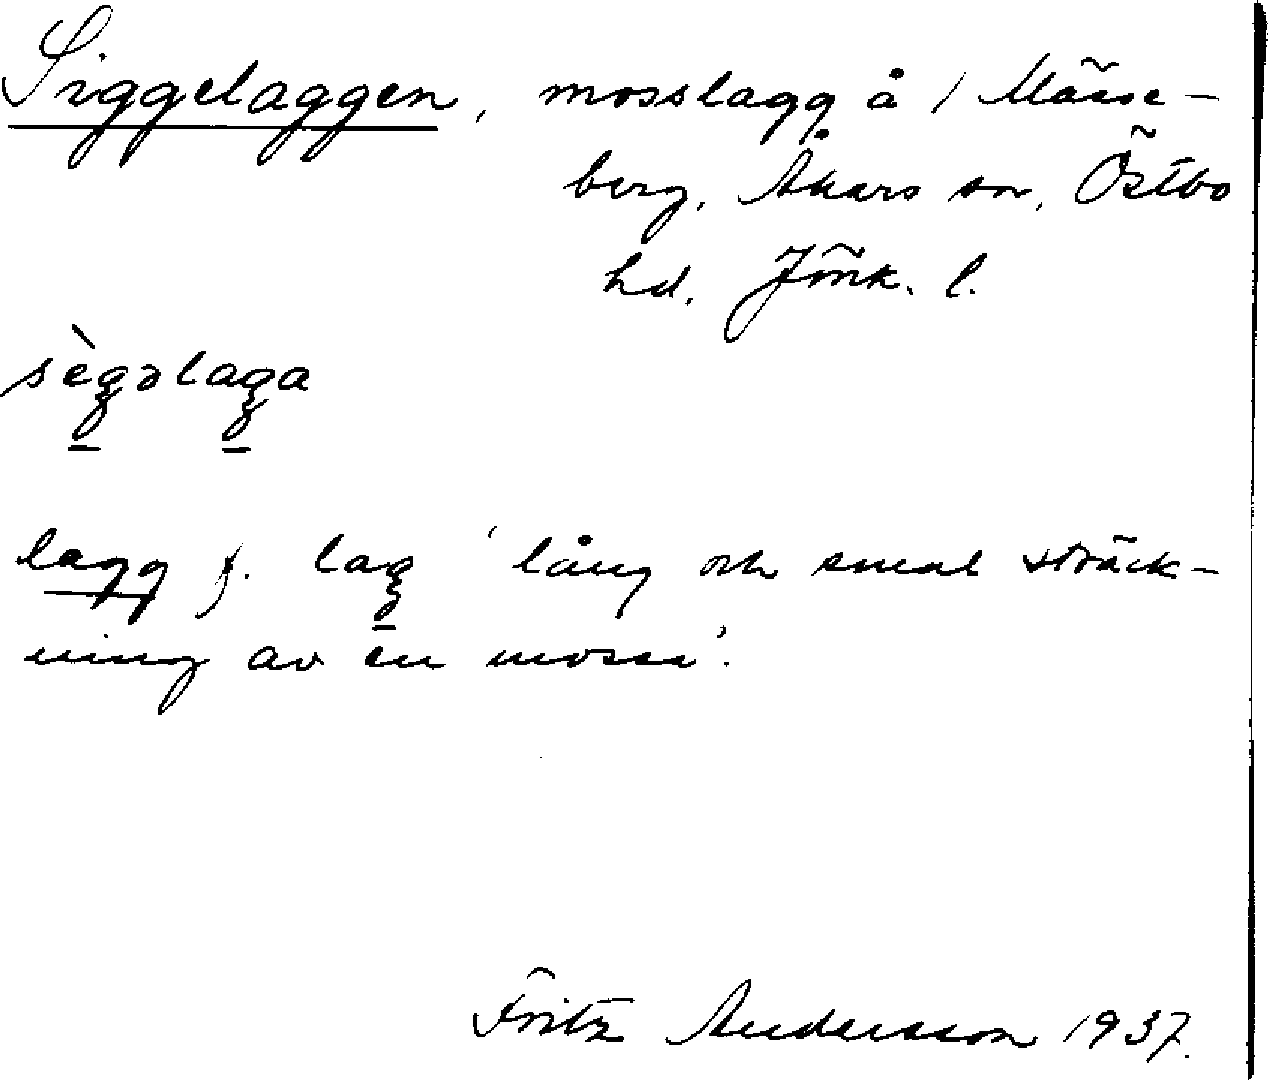 Siggelaggen, mosslagg å 1 Mässe-
berg, Åkers sn, Östbo
hd. Jönk. l.
sègəlaga
lagg f. lag 'lång och smal sträck-
ning av en mosse'.
Fritz Andersson 1937.